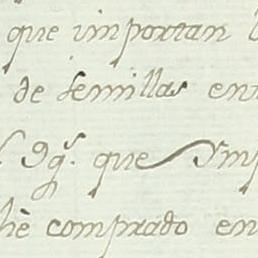 que importan
de semillas en
que Imp
hè comprado en